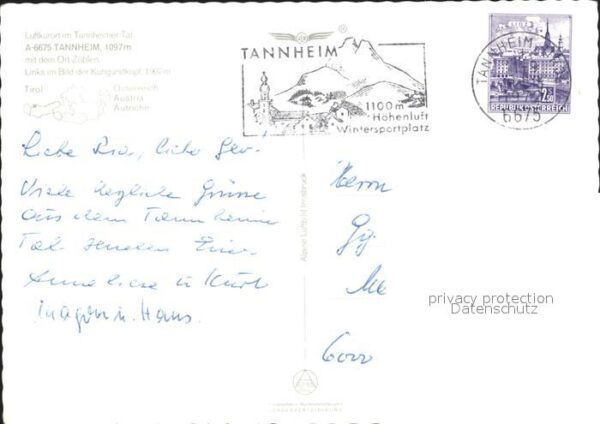 Luftkurort im Tannheimer Tal
A-6675 TANNHEIM, 1097m
mit dem Ort Zöblen
Links im Bild der Kuhgundkopf
Tirol
Österreich
Austria
Autriche
TANNHEIM
1100m
Höhenluft
Wintersportplatz
TANNHEIM
6675
2.50
REPUBLIK ÖSTERREICH
Liebe
Viele herzliche Grüsse
aus dem Tannheimer
Tal senden Eure
Anneliese u Kurt
u. Hans.
Alpine Luftbild Innsbruck
Herrn
privacy protection
Datenschutz